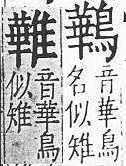 鷨
音華鳥
名似雉
音華鳥
似雉